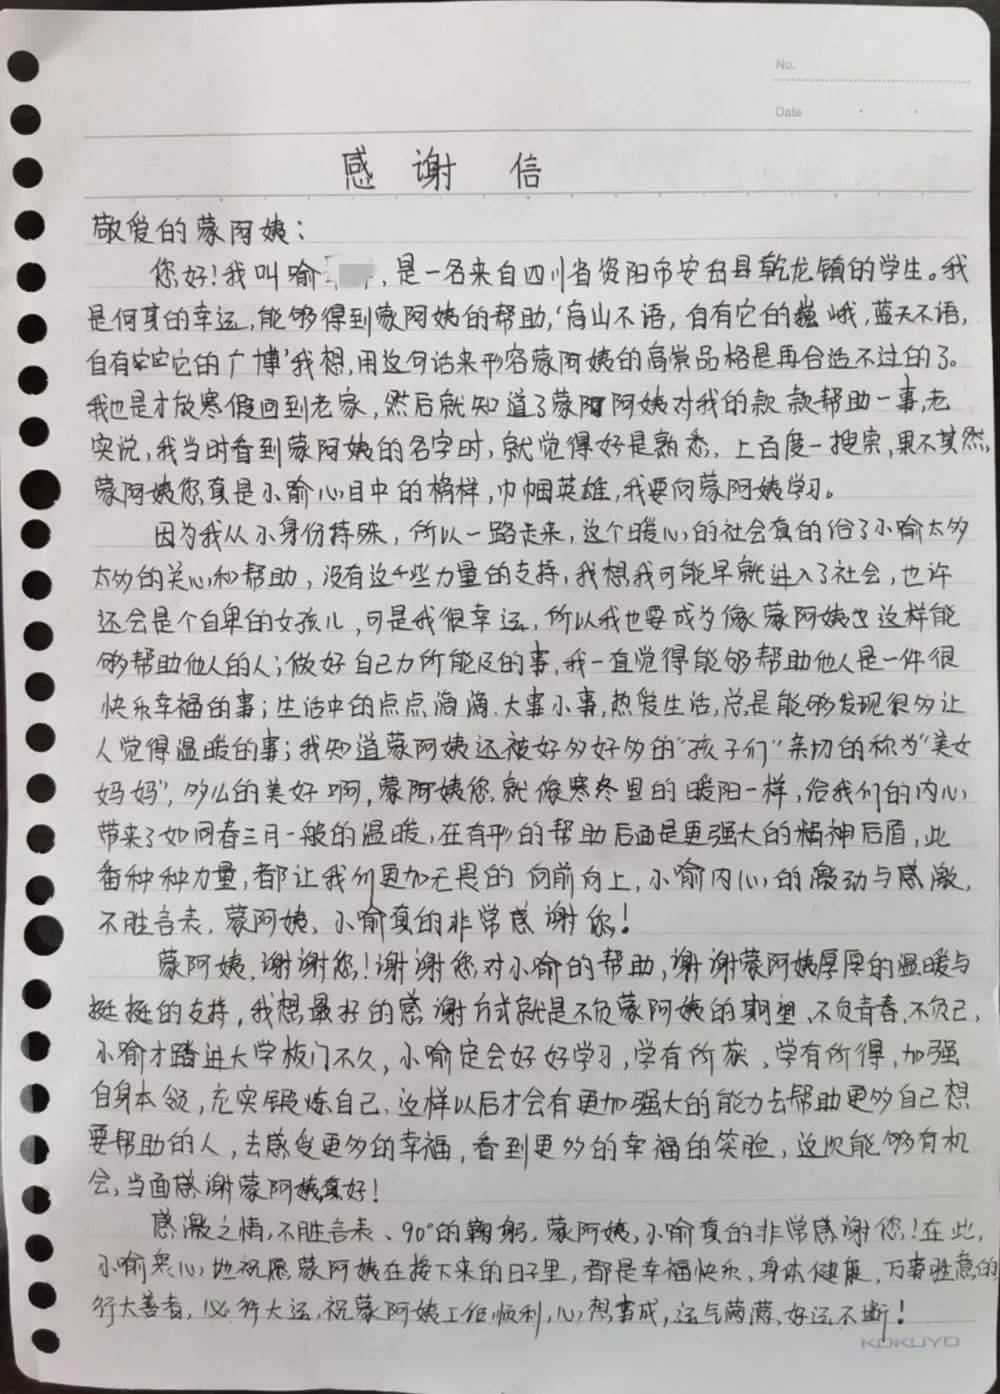 No.
Date
感谢信
敬爱的蒙阿姨：
您好！我叫喻，是一名来自四川省资阳市安岳县乾龙镇的学生。我
是何其的幸运，能够得到蒙阿姨的帮助，‘高山不语，自有它的巍峨，蓝天不语，
自有它的广博’我想，用这句话来形容蒙阿姨的高崇品格是再合适不过的了。
我也是才放寒假回到老家，然后就知道了蒙阿姨对我的款款帮助一事，老
实说，我当时看到蒙阿姨的名字时，就觉得好是熟悉，上百度一搜索，果不其然，
蒙阿姨您真是小喻心目中的榜样，巾帼英雄，我要向蒙阿姨学习。
因为我从小身份特殊，所以一路走来，这个暖心的社会真的给了小喻太多
太多的关心和帮助，没有这些力量的支持，我想我可能早就进入了社会，也许
还会是个自卑的女孩儿，可是我很幸运，所以我也要成为像蒙阿姨也这样能
够帮助他人的人；做好自己力所能及的事，我一直觉得能够帮助他人是一件很
快乐幸福的事；生活中的点点滴滴、大事小事，热爱生活，总是能够发现很多让
人觉得温暖的事；我知道蒙阿姨还被好多好多的“孩子们”亲切的称为“美女
妈妈”，多么的美好啊，蒙阿姨您就像寒冬里的暖阳一样，给我们的内心
带来了如同春三月一般的温暖，在有形的帮助后面是更强大的精神后盾，此
番种种力量，都让我们更加无畏的向前向上，小喻内心的激动与感激，
不胜言表，蒙阿姨，小喻真的非常感谢您！
蒙阿姨，谢谢您！谢谢您对小喻的帮助，谢谢蒙阿姨厚厚的温暖与
挺挺的支持，我想最好的感谢方式就是不负蒙阿姨的期望、不负青春、不负己，
小喻才踏进大学校门不久，小喻定会好好学习，学有所获、学有所得，加强
自身本领，充实锻炼自己，这样以后才会有更加强大的能力去帮助更多自己想
要帮助的人，去感受更多的幸福，看到更多的幸福的笑脸，这次能够有机
会，当面感谢蒙阿姨真好！
感激之情，不胜言表、90°的鞠躬，蒙阿姨，小喻真的非常感谢您！在此，
小喻衷心地祝愿蒙阿姨在接下来的日子里，都是幸福快乐，身体健康，万事胜意的
行大善者，必行大运，祝蒙阿姨工作顺利，心想事成，运气满满，好运不断！
KOKUYO